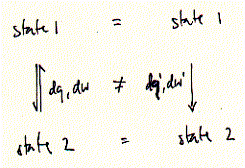 state 1 = state 1
dq, dw ≠ dq', dw'
state 2 = state 2